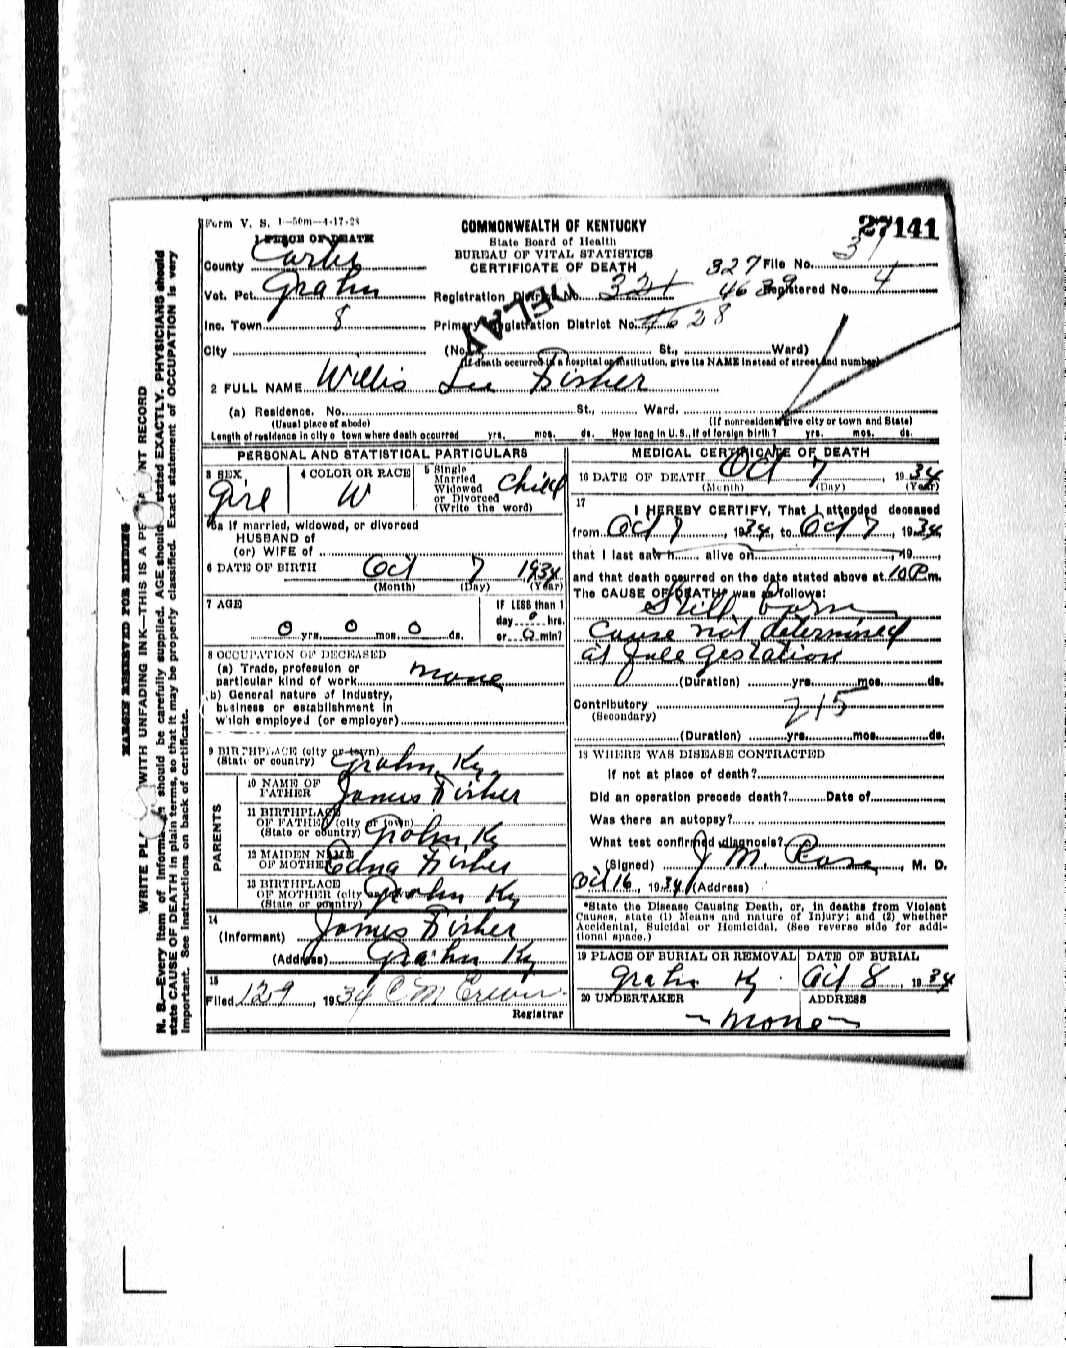 Form V. S. 1—50m—4-17-28
COMMONWEALTH OF KENTUCKY
State Board of Health
BUREAU OF VITAL STATISTICS
CERTIFICATE OF DEATH
27141
1 PLACE OF DEATH
County Carter
Vot. Pct. Grahn
Inc. Town 8
City
327 File No. 37
Registration District No. 321 4639 Registered No. 4
Primary Registration District No. 4628
DELAY
(No. St., Ward)
(If death occurred in a hospital or institution, give its NAME instead of street and number)
2 FULL NAME Willis Lee Fisher
(a) Residence. No. St., Ward.
(Usual place of abode) (If nonresident give city or town and State)
Length of residence in city o town where death occurred yrs. mos. ds. How long in U.S., if of foreign birth? yrs. mos. ds.
PERSONAL AND STATISTICAL PARTICULARS
3 SEX Girl
4 COLOR OR RACE W
5 Single
Married
Widowed
or Divorced
(Write the word) Child
5a If married, widowed, or divorced
HUSBAND of
(or) WIFE of
6 DATE OF BIRTH Oct 7 1934
(Month) (Day) (Year)
7 AGE
0 yrs. 0 mos. 0 ds.
IF LESS than 1
day 0 hrs.
or 0 min?
8 OCCUPATION OF DECEASED
(a) Trade, profession or
particular kind of work none
b) General nature of Industry,
business or establishment in
which employed (or employer)
9 BIRTHPLACE (city or town)
(State or country) Grahn Ky
PARENTS
10 NAME OF
FATHER James Fisher
11 BIRTHPLACE
OF FATHER (city or town)
(State or country) Grahn Ky
12 MAIDEN NAME
OF MOTHER Edna Fisher
13 BIRTHPLACE
OF MOTHER (city or town)
(State or country) Grahn Ky
14
(Informant) James Fisher
(Address) Grahn Ky
15
Filed 129, 1934
Registrar
MEDICAL CERTIFICATE OF DEATH
16 DATE OF DEATH Oct 7, 1934
(Month) (Day) (Year)
17 I HEREBY CERTIFY, That I attended deceased
from Oct 7, 1934, to Oct 7, 1934,
that I last saw h alive on , 19 ,
and that death occurred on the date stated above at 10 P.m.
The CAUSE OF DEATH* was as follows:
Still born
Cause not determined
at full gestation
(Duration) yrs. mos. ds.
Contributory
(Secondary) 215
(Duration) yrs. mos. ds.
18 WHERE WAS DISEASE CONTRACTED
If not at place of death?
Did an operation precede death? Date of
Was there an autopsy?
What test confirmed diagnosis?
(Signed) J M. Rose, M. D.
Oct 16, 1934 (Address)
*State the Disease Causing Death, or, in deaths from Violent
Causes, state (1) Means and nature of Injury; and (2) whether
Accidental, Suicidal or Homicidal. (See reverse side for addi-
tional space.)
19 PLACE OF BURIAL OR REMOVAL Grahn Ky
DATE OF BURIAL Oct 8, 1934
20 UNDERTAKER ADDRESS
~none~
MARGIN RESERVED FOR BINDING
WRITE PL WITH UNFADING INK—THIS IS A PE NT RECORD
N. B.—Every item of Information should be carefully supplied. AGE should stated EXACTLY. PHYSICIANS should
state CAUSE OF DEATH in plain terms, so that it may be properly classified. Exact statement of OCCUPATION is very
important. See Instructions on back of certificate.